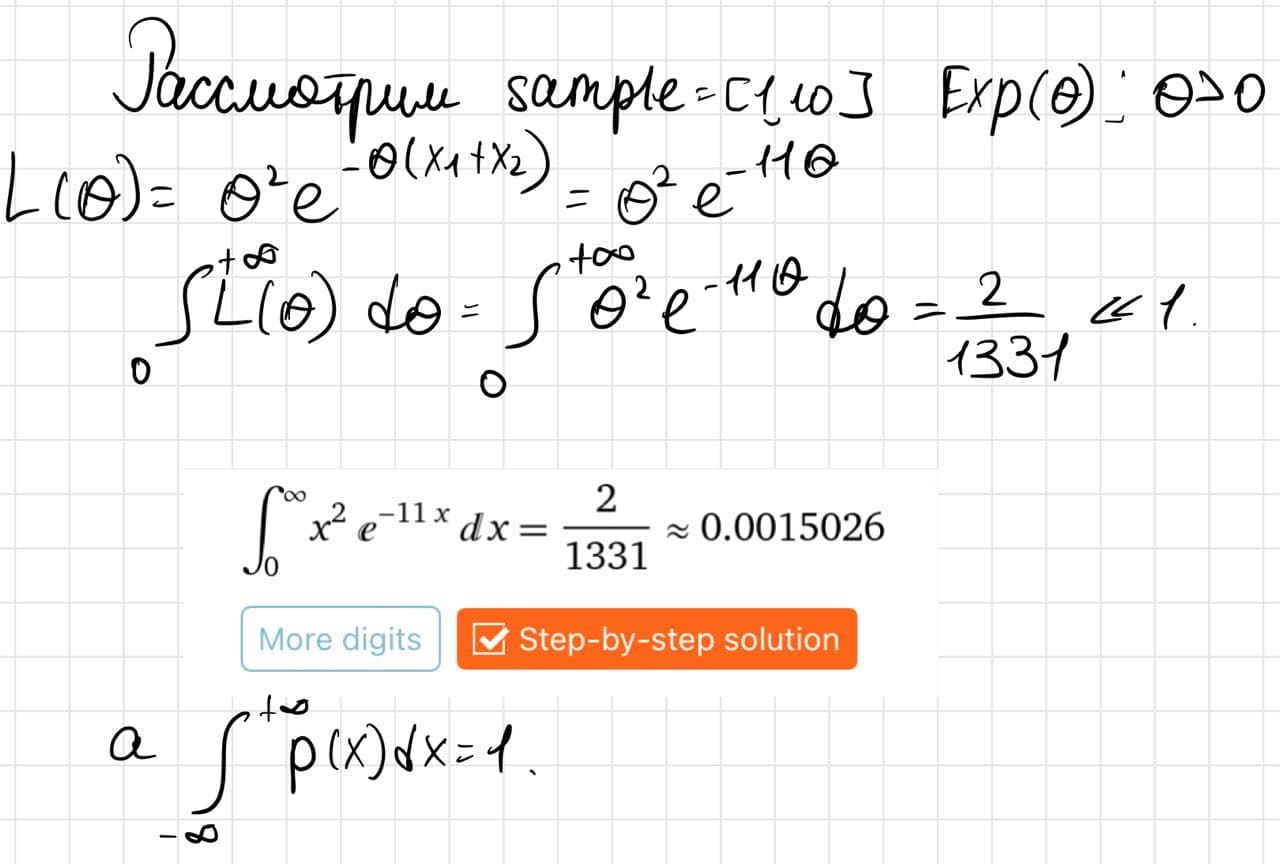 Рассмотрим sample=[1,10] Exp(θ): θ>0
L(θ)= θ²e^{-θ(x₁+x₂)} = θ² e^{-11θ}
∫₀^{+∞} L(θ) dθ = ∫₀^{+∞} θ² e^{-11θ} dθ = 2/1331 ≪ 1.
∫₀^∞ x² e^{-11x} dx = 2/1331 ≈ 0.0015026
More digits Step-by-step solution
а ∫_{-∞}^{+∞} p(x)dx=1.